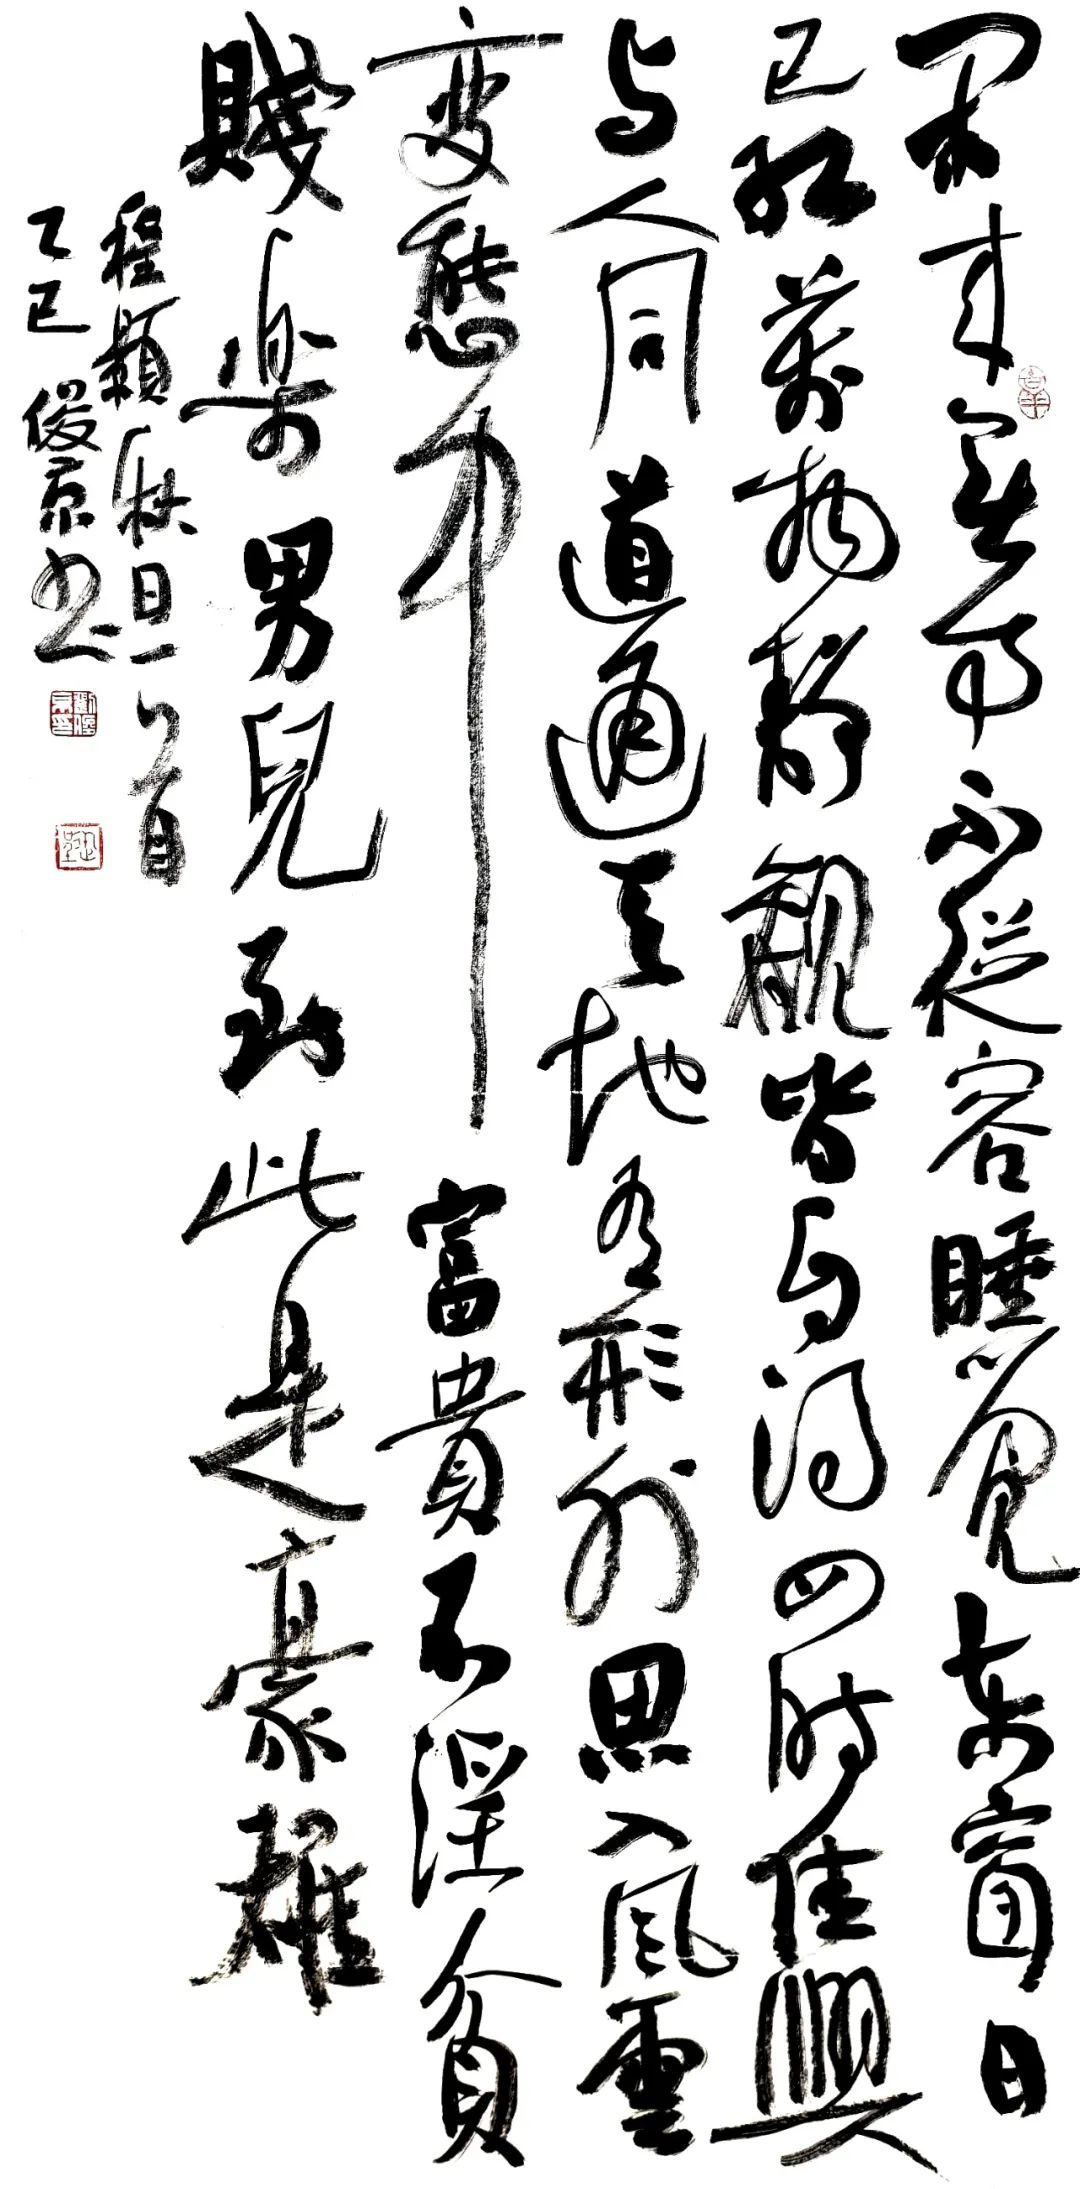 閑来無事不從容睡覺東窗日
已紅萬物靜觀皆自得四時佳興
与人同道通天地有形外思入風雲
变態中富貴不淫貧
賤樂男兒到此是豪雄
程顥秋日一首
乙巳俊京书